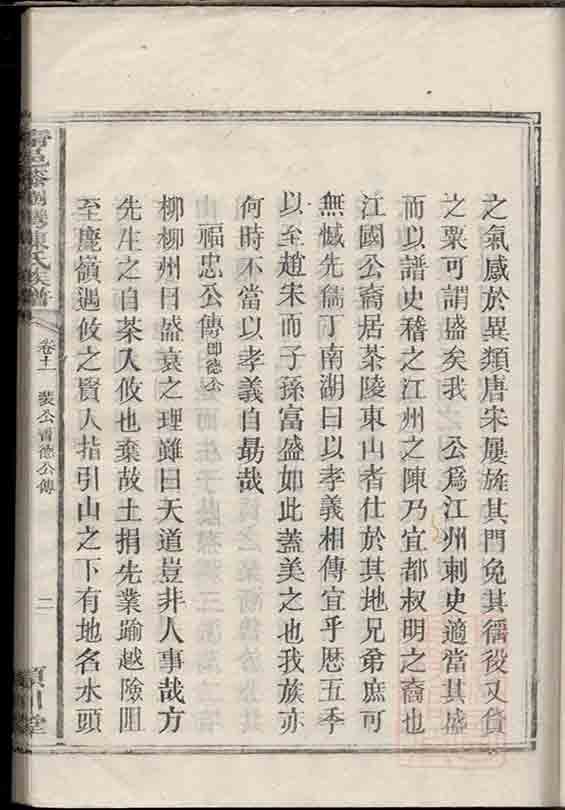 之氣感於異類唐宋屢旌其門免其徭役又貸
之粟可謂盛矣我　公爲江州刺史適當其盛
而以譜史稽之江州之陳乃宜都叔明之裔也
江國公裔居茶陵東山者仕於其地兄弟庶可
無憾先儒丁南湖曰以孝義相傳宜乎歷五季
以至趙宋而子孫富盛如此蓋美之也我族亦
何時不當以孝義自勗哉
福忠公傳即德公
柳柳州曰盛衰之理雖曰天道豈非人事哉方
先生之自茶入攸也棄故土捐先業踰越險阻
至鹿嶺遇攸之賢人指引山之下有地名水頭
陳氏族譜
卷十一　裴公晉德公傳
二
川堂